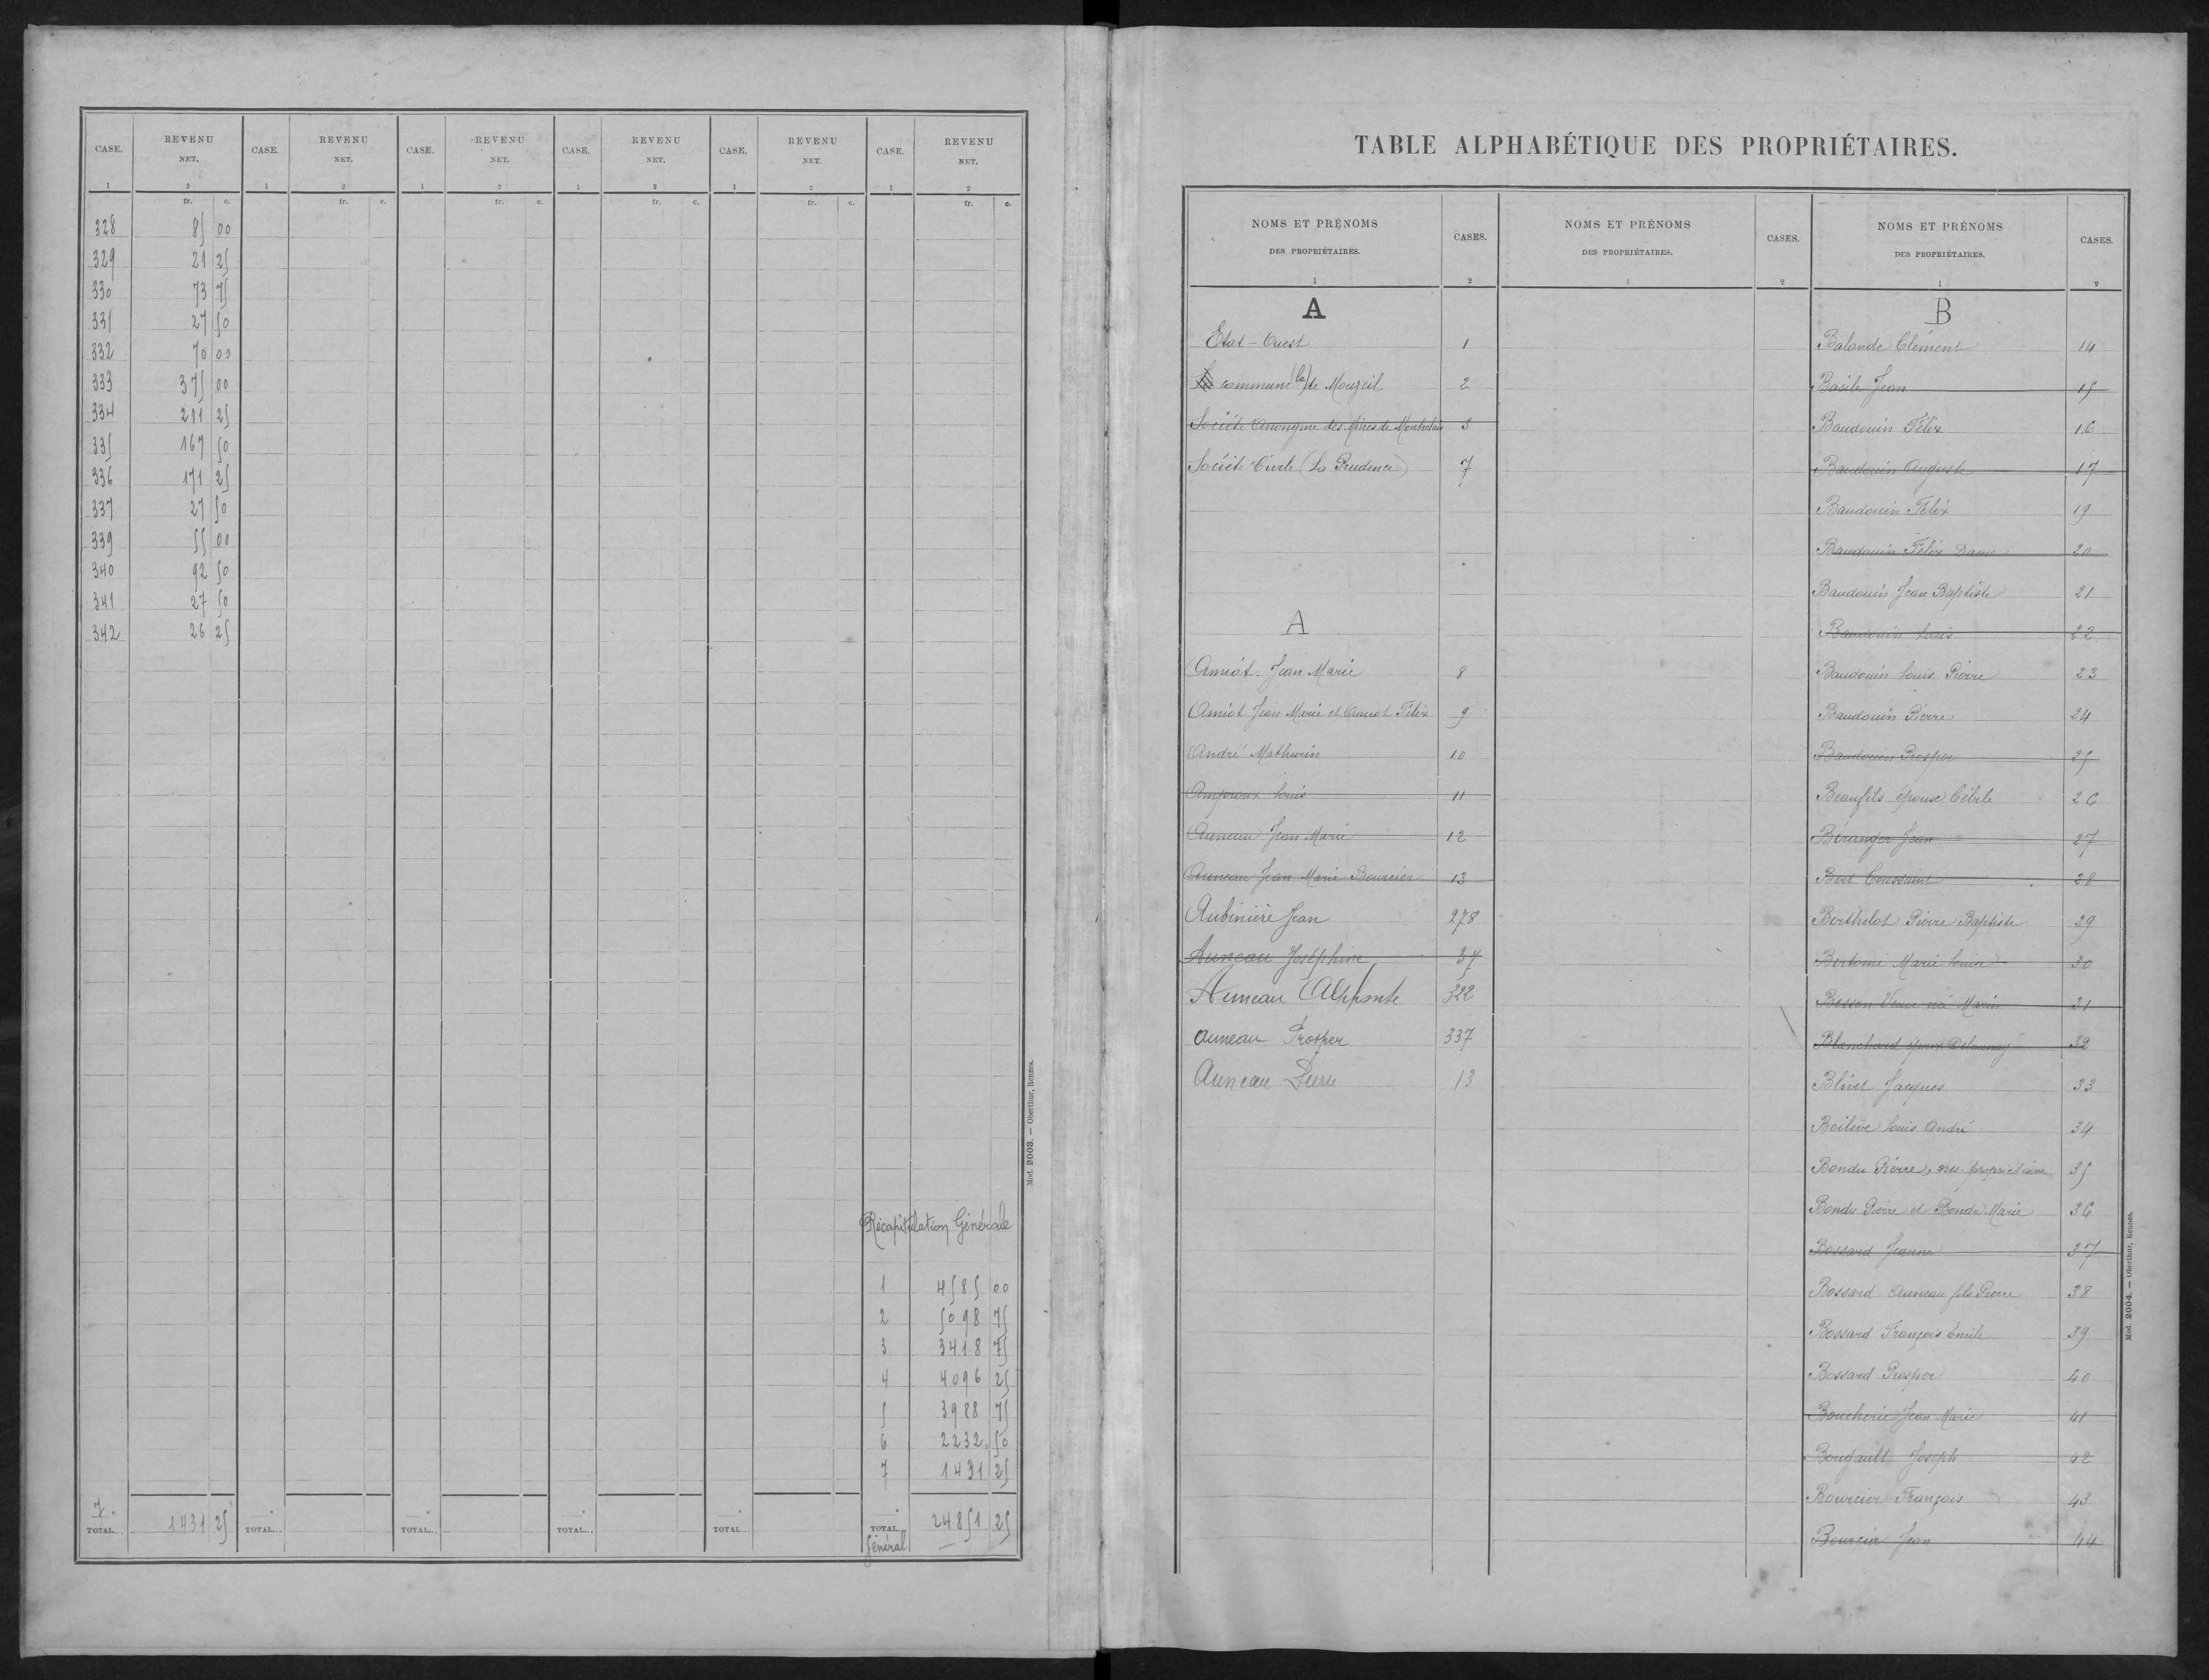 CASE. REVENU NET. CASE. REVENU NET. CASE. REVENU NET. CASE. REVENU NET. CASE. REVENU NET. CASE. REVENU NET.
1 2 1 2 1 2 1 2 1 2 1 2
fr. c. fr. c. fr. c. fr. c. fr. c. fr. c.
328 85 00
329 21 25
330 73 75
331 27 50
332 70 00
333 375 00
334 211 25
335 167 50
336 171 25
337 27 50
339 55 00
340 92 50
341 27 50
342 26 25
Récapitulation Générale
1 4585 00
2 5098 75
3 3418 75
4 4096 25
5 3988 75
6 2232 50
7 1431 25
7
TOTAL... 1431 25 TOTAL... TOTAL... TOTAL... TOTAL... TOTAL... Général 24851 25
Mod. 2003. — Oberthur, Rennes.
TABLE ALPHABÉTIQUE DES PROPRIÉTAIRES.
NOMS ET PRÉNOMS DES PROPRIÉTAIRES. CASES. NOMS ET PRÉNOMS DES PROPRIÉTAIRES. CASES. NOMS ET PRÉNOMS DES PROPRIÉTAIRES. CASES.
1 2 1 2 1 2
A
Etat-Ouest 1
commune (la) de Mouzeil 2
Société Anonyme des Mines de Montrelais 3
Société Civile (La Prudence) 7
A
Amiot Jean Marie 8
Amiot Jean Marie et Amiot Félix 9
André Mathurin 10
Amproux Louis 11
Auneau Jean Marie 12
Auneau Jean Marie Bourcier 13
Aubinière Jean 278
Auneau Joséphine 37
Auneau Alphonse 322
Auneau Prosper 337
Auneau Pierre 13
B
Balande Clément 14
Basile Jean 15
Baudouin Félix 16
Baudouin Auguste 17
Baudouin Félix 19
Baudouin Félix Dame 20
Baudouin Jean Baptiste 21
Baudouin Louis 22
Baudouin Louis Pierre 23
Baudouin Pierre 24
Baudouin Prosper 25
Beaufils épouse Cébile 26
Béranger Jean 27
Bert Toussaint 28
Berthelot Pierre Baptiste 29
Bertomé Marie Louise 30
Besson Veuve née Marie 31
Blanchard époux Delaunay 32
Blivet Jacques 33
Boitive Louis André 34
Bondu Pierre, nu-propriétaire 35
Bondu Pierre et Bondu Marie 36
Bossard Jeanne 37
Bossard Auneau fils Pierre 38
Bossard François Emile 39
Bossard Prosper 40
Boucherie Jean Marie 41
Bougault Joseph 42
Bourcier François 43
Bourcier Jean 44
Mod. 2004. — Oberthur, Rennes.